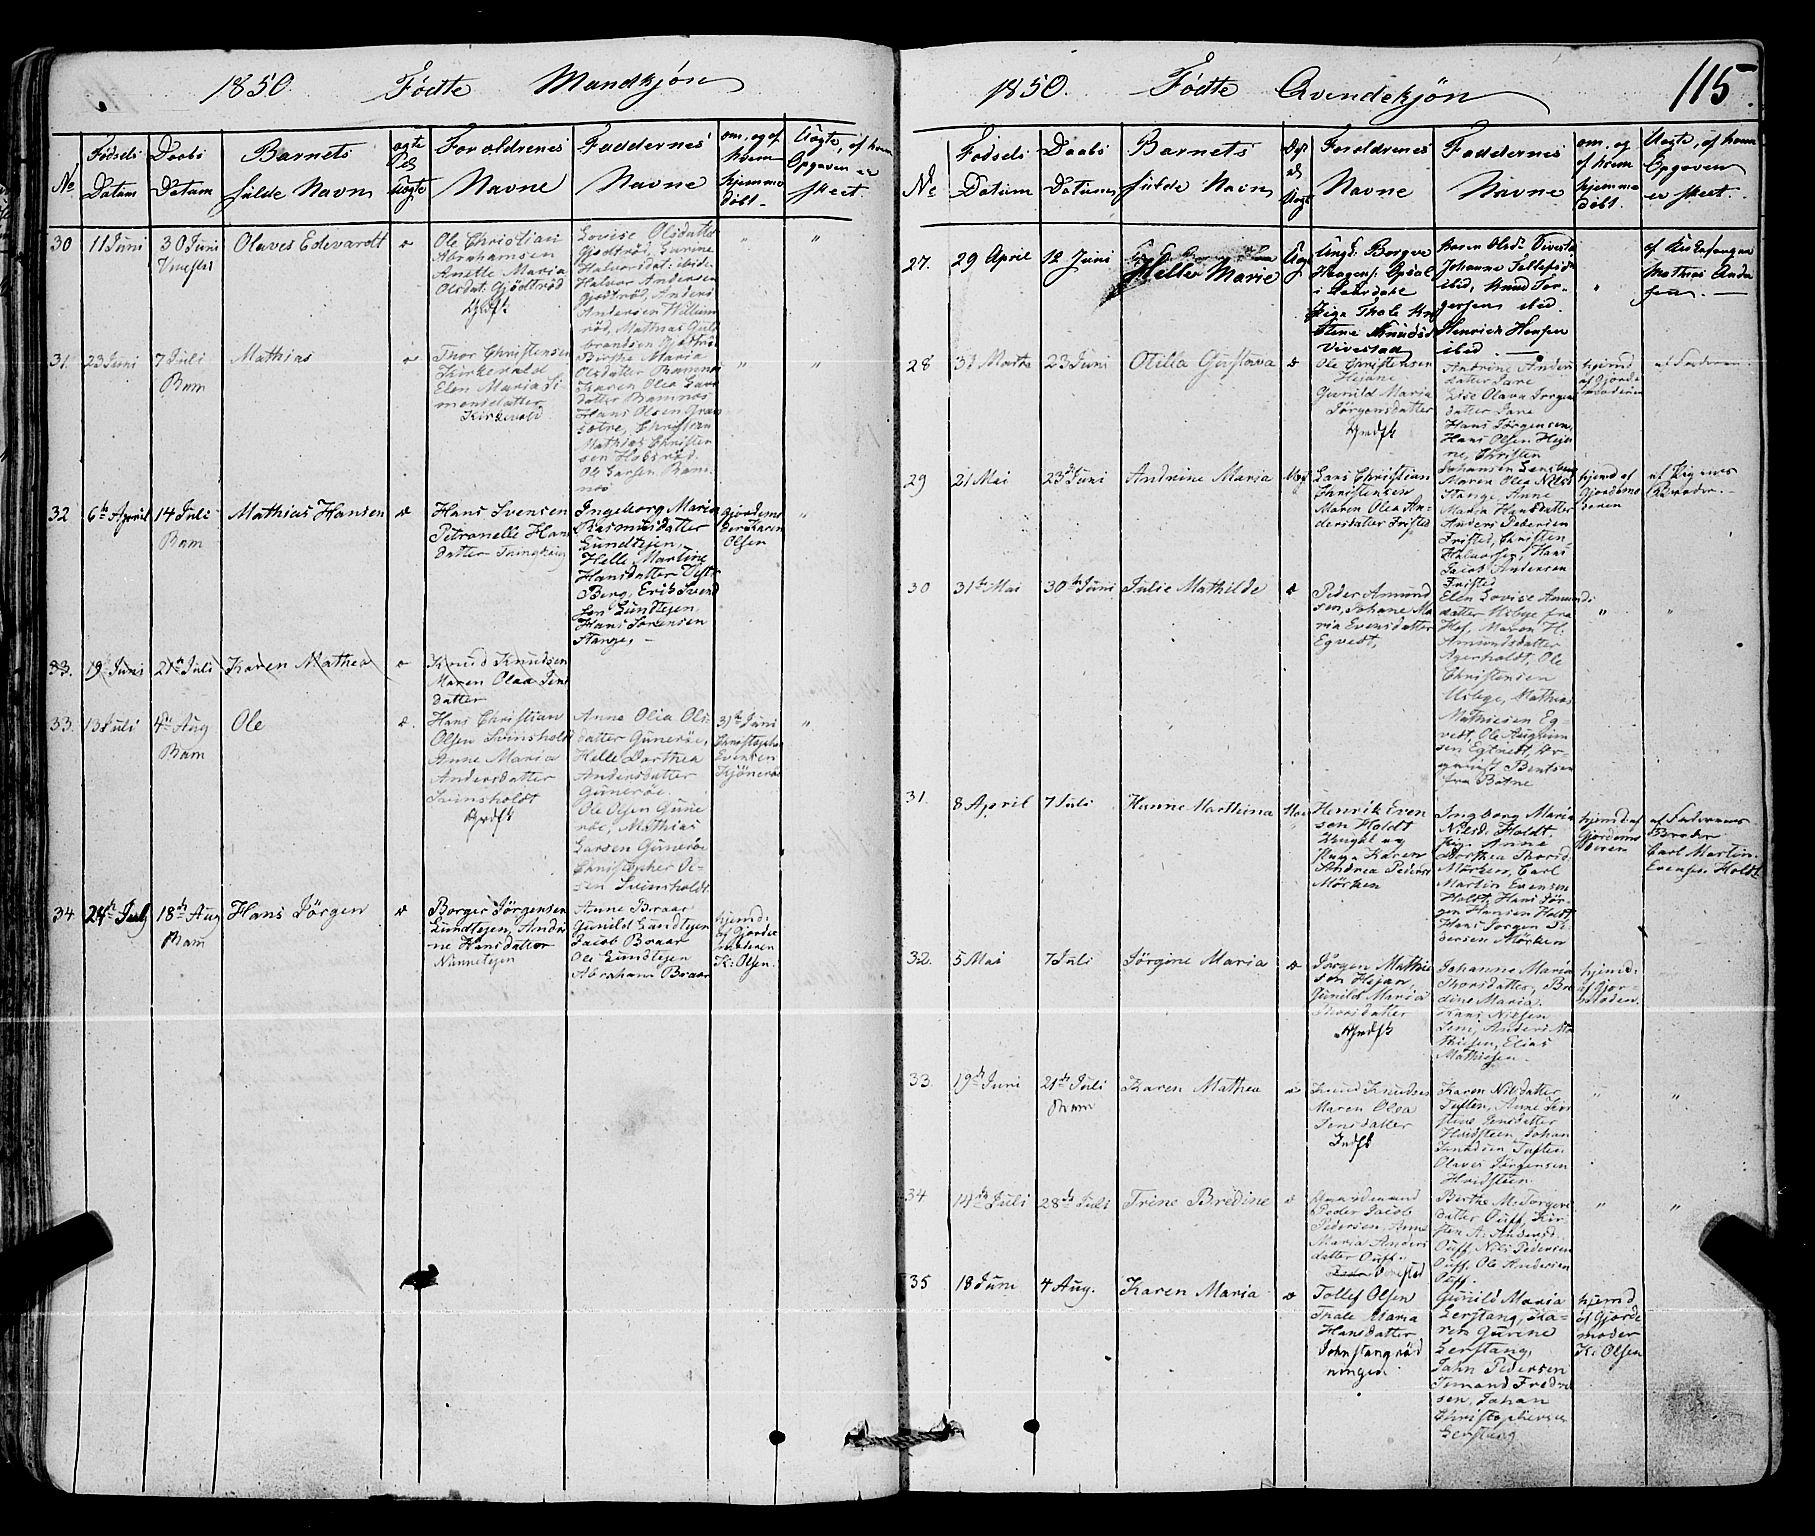 1850. Fødte Mandkjøn
No
Fødsels Datum
Daabs Datum
Barnets fulde Navn
ægte el. uægte
Forældrenes Navne
Faddernes Navne
om, og af hvem hjemmedøbt.
Uægte, af hvem Opgaven er skeet.
30 11 Juni 30 Juni Olaves Edevardt æ
Ole Christian
Abrahamsen
Anette Maria
Olsdat. Gjödtröd
Lovise Olsdatter
Gjödtröd, Gurine
Halvorsdat. ibid.
Halvor Andersen
Gjödtröd, Anders
Andersen Hillum
röd, Mathias Gul
brandsen Gjödtröd
" "
31. 23 Juni 7 Juli Mathias æ
Ram
Thor Christensen
Kirkevold
Elen Maria Si
monsdatter
Kirkevold
Birthe Maria
Olsdatter Ramnæs
Karen Olea Lars
datter Ramnæs
Hans Olsen Gran
Mathias Christen
sen
Ole Larsen Ram
næs
" "
32 6te April 14 Juli Mathias Hansen æ
Ram
Hans Svensen
Petronelle Hans
datter
Ingeborg Maria
Rasmusdatter
Lundtejen,
Helle Martine
Hansdatter Vest
Berg, Erik Svend
sen Lundtejen,
Hans Sörensen
Stange, –
gjordemo
der Karen
Olsen
"
33. 19 Juni 21de Juli Karen Mathea æ
Knud Knudsen
Maren Olea Jens
datter
33. 13 Juli 4de Aug Ole æ.
Ram
Hans Christian
Olsen Svinsholdt
Anne Maria
Andersdatter
Svinsholdt
Anne Olia Ols
datter Gunerøe,
Helle Dorthea
Andersdatter
Gunerøe.
Ole Olsen Gune
røe, Mathias
Larsen Gunerøe
Christopher Ol-
sen Svinsholdt
31te Juni
Christopher
Evensen
"
34 24de Juli 18de Aug Hans Jörgen æ
Ram
Borger Jörgensen
Lundtejen, Andri
ne Hansdatter
Nannetejen
Anne Braar
Gunild Lundtejen
Jacob Braar
Ole Lundtejen
Abraham Braar
hjemd:
af Gjorde
moderen
K: Olsen.
1850. Fødte Qvindekjön 115.
No
Fødsels Datum
Daabs Datum
Barnets fulde Navn
Ægt. el. Uægt
Forældrenes Navne
Faddernes Navne
om, og af hvem hjemmedøbt.
Uægte, af hvem Opgaven er skeet.
27. 29 April 12 Juni Helle Marie Uægt
Ungk. Borgve
Haagens: Opsal
i Laurdale
Pige Thale Kir
stine Knudsd
Vivestad
Maren Olsd: Vivestad
Johanne Tollefsd:
ibid, Knud Tor-
gersen ibid
Henrich Hansen
ibid –
"
Mathias Ander
sen. –
28 31 Marts 23 Juni Otilia Gustava æ
Ole Christensen
Hejane
Gunild Maria
Jörgensdatter
Andrine Anders
datter Jare
Lise Olava Jörgens
datter Jare
Hans Jörgensen,
Hans Olsen Heja
ne, Christen
hjemd
af Gjorde-
moderen
af Faderen
29 21 Mai 23de Juni Andrine Maria Uægt
Lars Christian
Christensen
Maren Olea An-
dersdatter Fristed
Maren Olea Nilsd
Stange, Anne
Maria Hansdatter
Anders Pedersen
Fristed, Christen
Halvorsen, Hans
Jacob Andersen
Fristed
hjemd af
Gjordemo
deren
af Pigens
Broder.
30 31te Mai 30te Juni Julie Mathilde æ
Peder Amund
sen, Johane Ma
ria Evensdatter
Egvedt,
Elen Lovise Amunds
datter Misbye fra
Hof, Maren H.
Amundsdatter
Agerholdt, Ole
Christensen
Misbye, Mathias
Mathiesen Eg-
vedt, Ole
sen Egtvedt,
Bentsen
fra Botne
" "
31. 8 April 7 Juli Hanne Marthina Uæg
Henrik Even
sen Holdt
Ungkl og
Pige Karen
Andrea Peders
Mörken
Ingborg Maria
Nilsd: Holdt
Pig: Anne
Dorthea Thorsd:
Mörken, Carl
Martin Evensen
Holdt, Hans Jör-
gen Hansen Holdt
Hans Jörgen Pe
dersen Mörken
hjemd. af
Gjordemo
deren
af Faderens
Broder
Carl Martin
Evensen Holdt
32. 5 Mai 7 Juli Jörgine Maria æ
Jörgen Mathie
sen Hejan,
Gunild Maria
Thorsdatter
Johanne Maria
Thorsdatter, Bre
dine Maria.
Hans Nilsen
Anders Ma
thiesen, Elias
Mathiesen
hjemd:
af Gjor-
moderen
33. 19de Juni 21de Juli Karen Mathea æ
Ram
Knud Knudsen
Maren Olea
Jensdatter
Karen Nilsdatter
Tuften, Anne Kir
stine Jensdatter
Hvidsteen, Johan
Knudsen Tuften
Olaves Jörgensen
Hvidsteen
" "
34 14de Juli 28de Juli Trine Bredine æ
Gaardmand
Peder Jacob
Pedersen, Anne
Maria Anders
datter Ouff.
Berthe M: Torgers
datter, Ouff, Kir-
sten A: Andersd.
Ouff, Nils Pedersen
Ouff, Ole Andersen
Ouff.
" "
35 18 Juni 4 Aug. Karen Maria æ
Tollef Olsen
Thale Maria
Hansdatter
Gunild Maria
Gerstang, Ka-
ren Gurine
Gerstang,
John Pedersen
Fredrik
sen, Johan
Christophersen
Gerstang
hjemd
af Gjorde
moder
K: Olsen